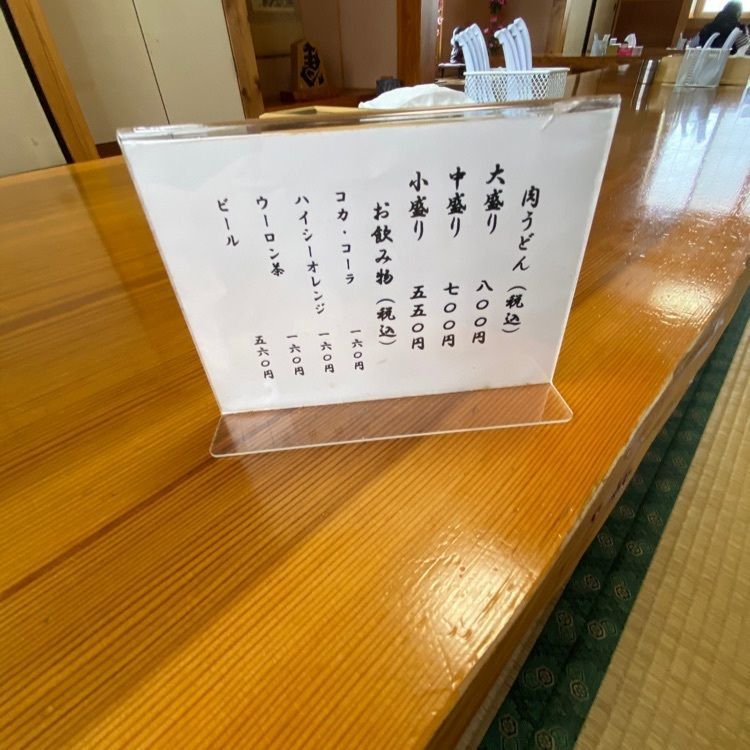 肉うどん（税込）
大盛り 八〇〇円
中盛り 七〇〇円
小盛り 五五〇円
お飲み物（税込）
コカ・コーラ 一六〇円
ハイシーオレンジ 一六〇円
ウーロン茶 一六〇円
ビール 五六〇円